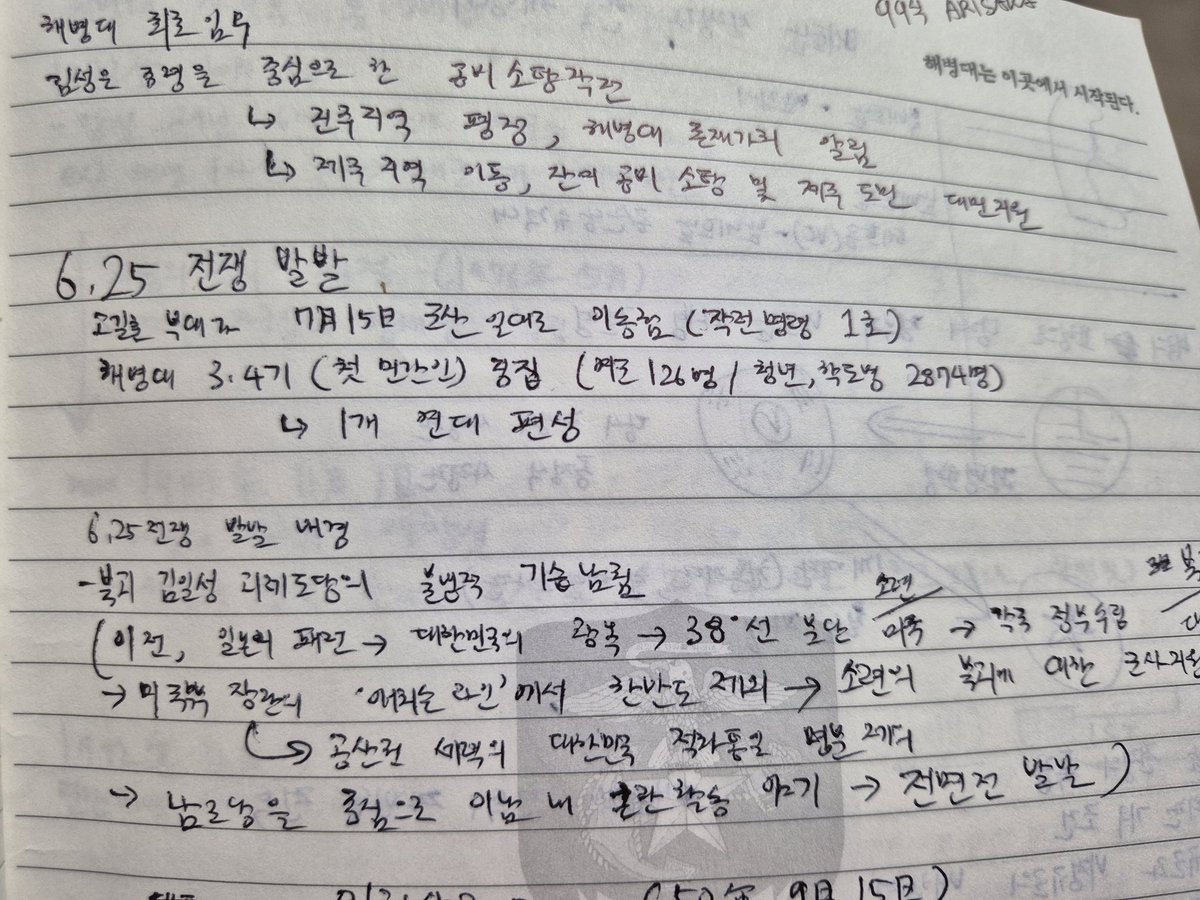 99식 ARISAKA
해병대는 이곳에서 시작된다.
해병대 최초임무
김성은 중령을 중심으로 한 공비소탕작전
↳ 진주지역 평정, 해병대 존재가치 알림
↳ 제주지역 이동, 잔여 공비 소탕 및 제주 도민 대민지원
6.25 전쟁 발발
고길훈 부대가 7月 15日 군산 일대로 이동함 (작전명령 1호)
해병대 3.4기 (첫 민간인) 모집 (여군 126명 / 청년, 학도병 2874명)
↳ 1개 연대 편성
6.25전쟁 발발 배경
-북괴 김일성 괴뢰도당의 불법적 기습남침
(이전, 일본의 패전 → 대한민국의 광복 → 38°선 분단 소련/미국 → 각국 정부수립
→ 미국 장관의 '애치슨라인'에서 한반도 제외 → 소련의 북괴에 대한 군사지원
↳ 공산권 세력의 대한민국 적화통일 명분 제기
→ 남로당을 중심으로 이남 내 활동 야기 → 전면전 발발)
(50年 9月 15日)